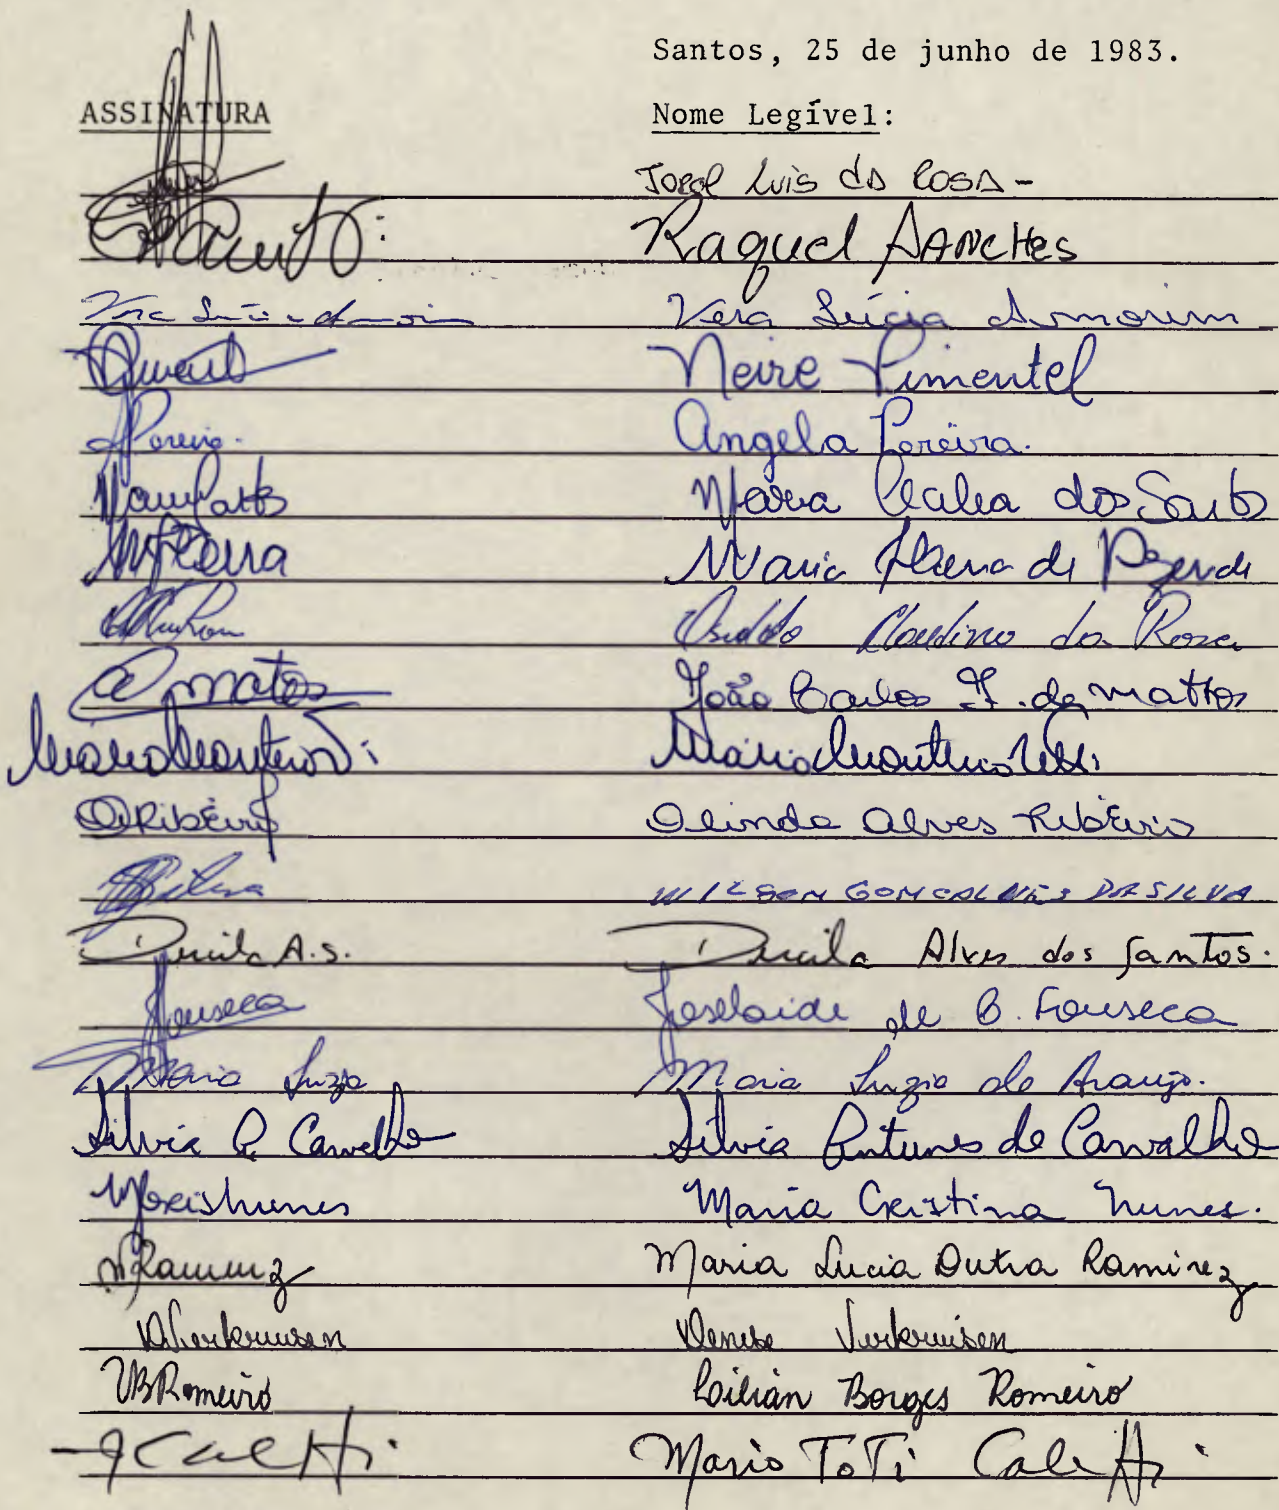 Santos, 25 de junho de 1983.
ASSINATURA Nome Legível:
Jorge Luis da Rosa -
Raquel SANCHES
Vera Lúcia Amorim
Neire Pimentel
APereira. Angela Pereira.
Maria dos Santos
Maria Helena de
Osvaldo Claudino da Rosa
Matos João Carlos F. de Mattos
Mario Monteiro Mário Monteiro
ORibeiro Olinda Alves Ribeiro
Silva WILSON GONCALVES DA SILVA
Ducila A.S. Ducila Alves dos Santos.
Fonseca Joselaide de B. Fonseca
Maria Luzia Maria Luzia de Araujo.
Silvia A. Carvalho Silvia Antunes de Carvalho
Maria Cristina Nunes.
Ramirez Maria Lucia Dutra Ramirez
DVerkruisen Denise Verkruisen
Romeiro Lilian Borges Romeiro
Mario ToTi